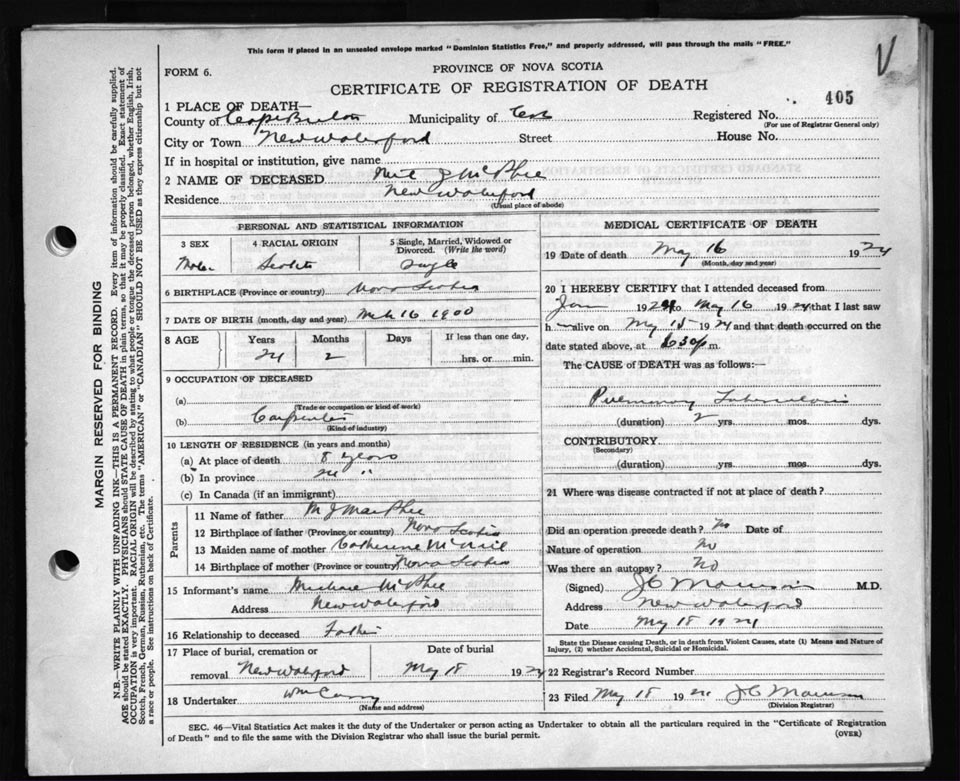 This form if placed in an unsealed envelope marked "Dominion Statistics Free," and properly addressed, will pass through the mails "FREE."
FORM 6.
PROVINCE OF NOVA SCOTIA
CERTIFICATE OF REGISTRATION OF DEATH
405
1 PLACE OF DEATH—
County of Cape Breton Municipality of Registered No.
(For use of Registrar General only)
City or Town New Waterford Street House No.
If in hospital or institution, give name
2 NAME OF DECEASED J McPhee
Residence New Waterford
(Usual place of abode)
PERSONAL AND STATISTICAL INFORMATION
3 SEX 4 RACIAL ORIGIN 5 Single, Married, Widowed or Divorced. (Write the word)
Male Scotch Single
6 BIRTHPLACE (Province or country) Nova Scotia
7 DATE OF BIRTH (month, day and year) Mch 16 1900
8 AGE Years Months Days If less than one day,
24 2 hrs. or min.
9 OCCUPATION OF DECEASED
(a)
(Trade or occupation or kind of work)
(b) Carpenter
(Kind of industry)
10 LENGTH OF RESIDENCE (in years and months)
(a) At place of death 8 years
(b) In province 24 "
(c) In Canada (if an immigrant)
Parents
11 Name of father M J MacPhee
12 Birthplace of father (Province or country) Nova Scotia
13 Maiden name of mother Catherine McNeil
14 Birthplace of mother (Province or country) Nova Scotia
15 Informant's name McPhee
Address New Waterford
16 Relationship to deceased Father
17 Place of burial, cremation or removal New Waterford Date of burial May 18 1924
18 Undertaker Wm Curry
(Name and address)
MEDICAL CERTIFICATE OF DEATH
19 Date of death May 16 1924
(Month, day and year)
20 I HEREBY CERTIFY that I attended deceased from
Jan 1924 to May 16 1924 that I last saw
h alive on May 15 1924 and that death occurred on the
date stated above, at 630p m.
The CAUSE of DEATH was as follows:—
Pulmonary Tuberculosis
(duration) 2 yrs. mos. dys.
CONTRIBUTORY
(Secondary)
(duration) yrs. mos. dys.
21 Where was disease contracted if not at place of death?
Did an operation precede death? No Date of
Nature of operation No
Was there an autopsy? No
(Signed) J C Morrison M.D.
Address New Waterford
Date May 18 1924
State the Disease causing Death, or in death from Violent Causes, state (1) Means and Nature of Injury, (2) whether Accidental, Suicidal or Homicidal.
22 Registrar's Record Number
23 Filed May 18 1924 J C Morrison
(Division Registrar)
SEC. 46—Vital Statistics Act makes it the duty of the Undertaker or person acting as Undertaker to obtain all the particulars required in the "Certificate of Registration
of Death" and to file the same with the Division Registrar who shall issue the burial permit.
(OVER)
MARGIN RESERVED FOR BINDING
N.B.—WRITE PLAINLY WITH UNFADING INK—THIS IS A PERMANENT RECORD. Every item of information should be carefully supplied.
AGE should be stated EXACTLY. PHYSICIANS should STATE CAUSE OF DEATH in plain terms, so that it may be properly classified. Exact statement of
OCCUPATION is very important. RACIAL ORIGIN will be described by stating to what people or tongue the deceased person belonged, whether English, Irish,
Scotch, French, German, Russian, Ruthenian, etc. The terms "AMERICAN" or "CANADIAN" SHOULD NOT BE USED as they express citizenship but not
a race or people. See instructions on back of Certificate.